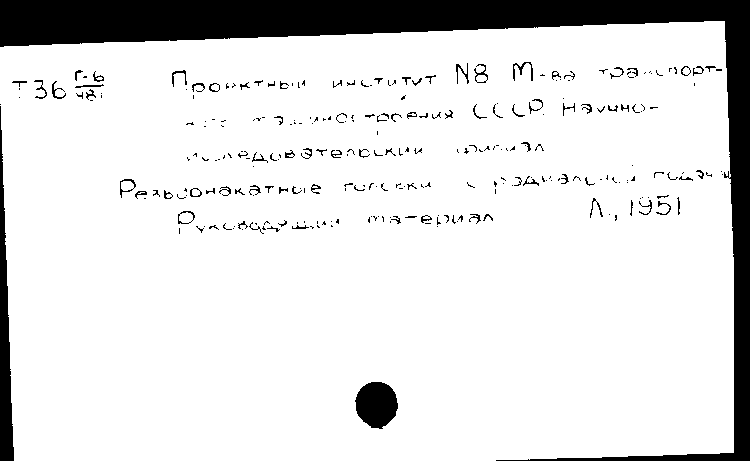 Т36 Г-6/481 Проектный институт N8 М-ва транспорт-
ного машиностроения СССР. Научно-
исследовательский филиал
Резьбонакатные головки с радиальной подачей
Руководящий материал Л., 1951